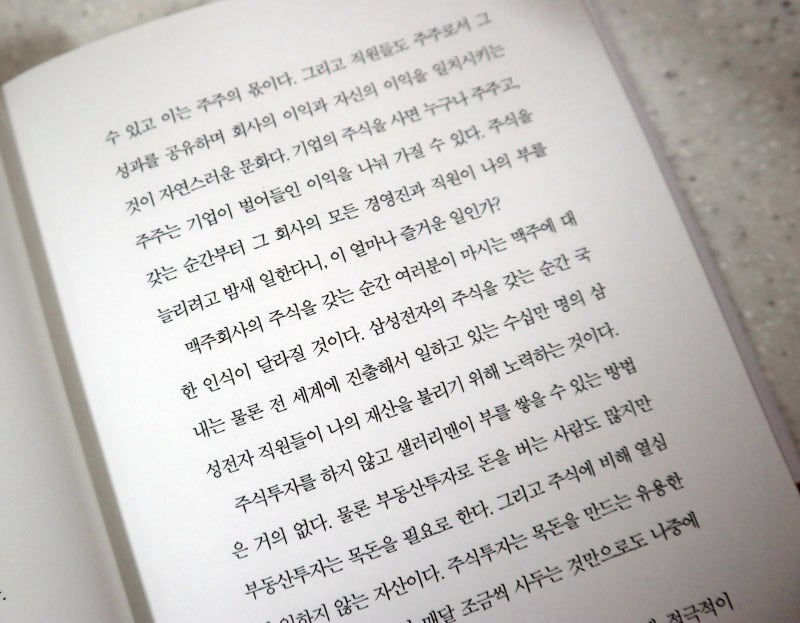 수 있고 이는 주주의 몫이다. 그리고 직원들도 주주로서 그
성과를 공유하며 회사의 이익과 자신의 이익을 일치시키는
것이 자연스러운 문화다. 기업의 주식을 사면 누구나 주주고,
주주는 기업이 벌어들인 이익을 나눠 가질 수 있다. 주식을
갖는 순간부터 그 회사의 모든 경영진과 직원이 나의 부를
늘리려고 밤새 일한다니, 이 얼마나 즐거운 일인가?
맥주회사의 주식을 갖는 순간 여러분이 마시는 맥주에 대
한 인식이 달라질 것이다. 삼성전자의 주식을 갖는 순간 국
내는 물론 전 세계에 진출해서 일하고 있는 수십만 명의 삼
성전자 직원들이 나의 재산을 불리기 위해 노력하는 것이다.
주식투자를 하지 않고 샐러리맨이 부를 쌓을 수 있는 방법
은 거의 없다. 물론 부동산투자로 돈을 버는 사람도 많지만
부동산투자는 목돈을 필요로 한다. 그리고 주식에 비해 열심
일하지 않는 자산이다. 주식투자는 목돈을 만드는 유용한
매달 조금씩 사두는 것만으로도 나중에
적극적이